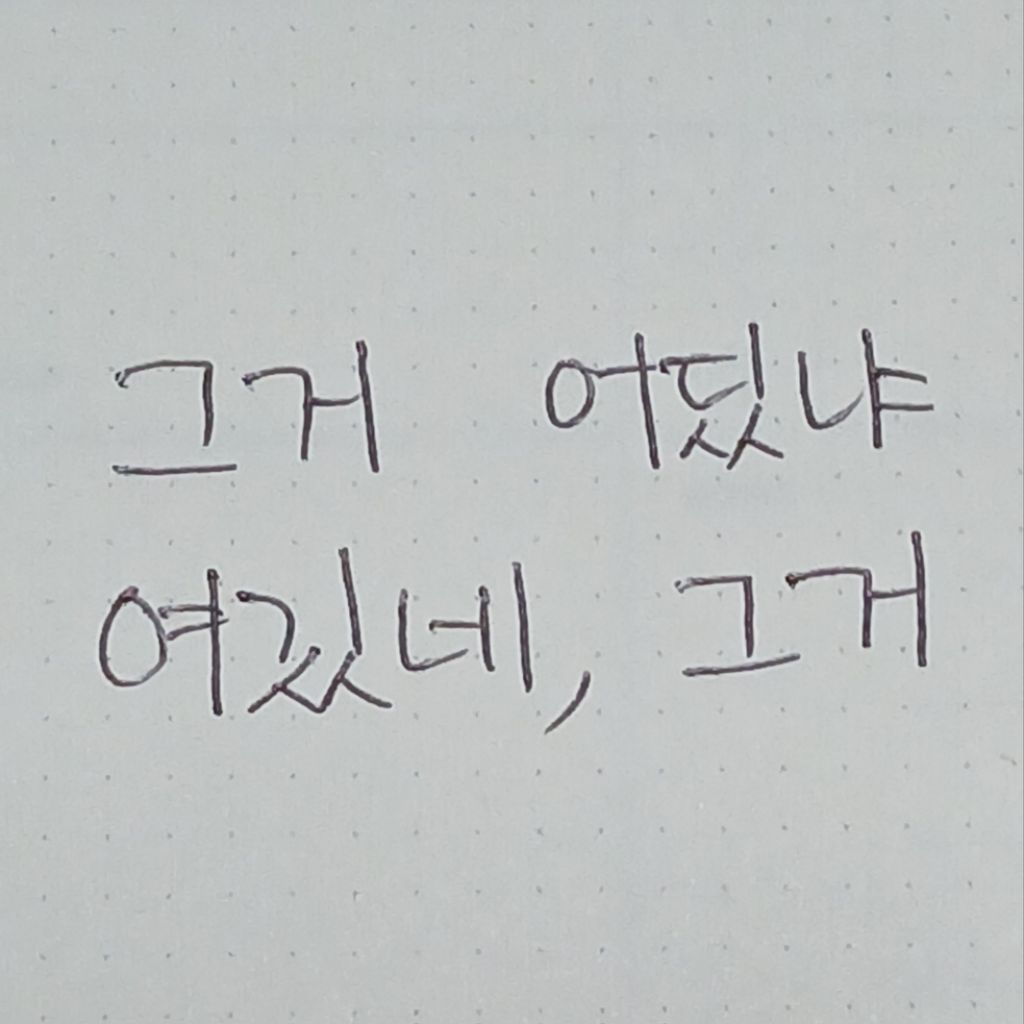 그거 어딨냐
여깄네, 그거